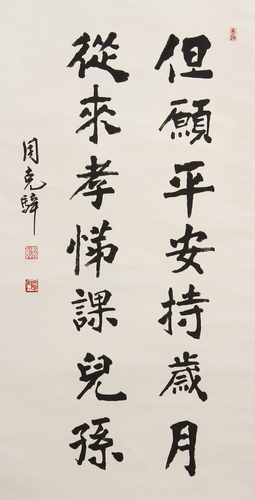 但願平安持歲月
從來孝悌課兒孫
周克